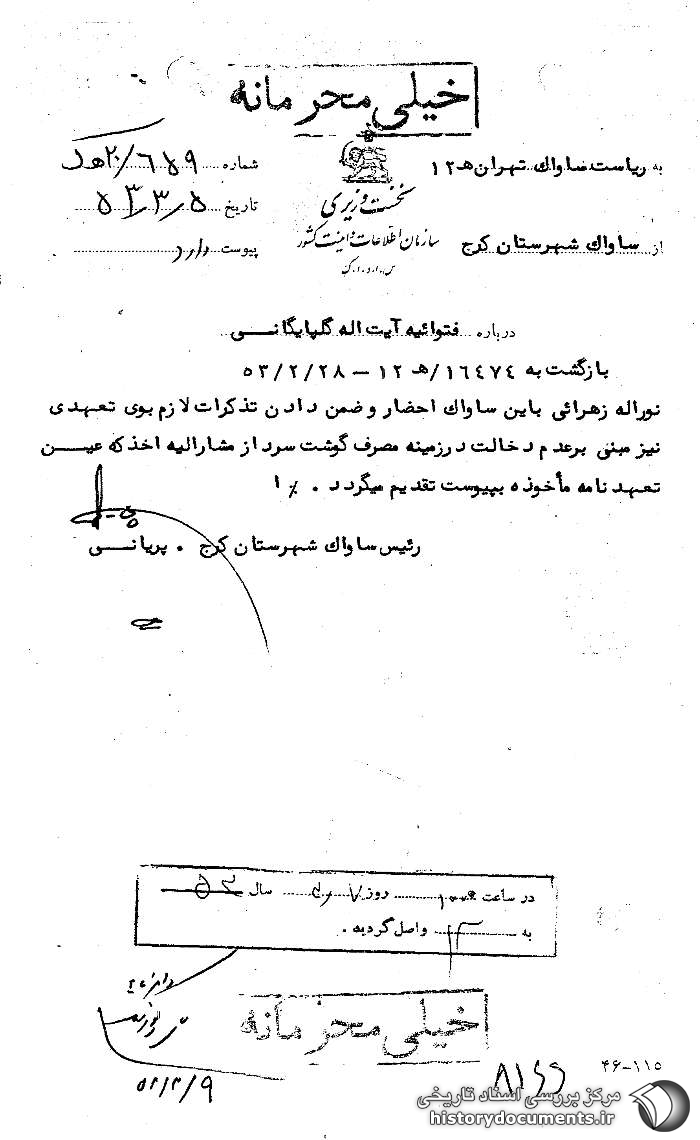 خیلی محرمانه
به ریاست ساواک تهران هـ ۱۲
شماره ۲۰/۶۵۹ هـ ک
نخست وزیری
تاریخ ۵۳/۳/۵
از ساواک شهرستان کرج
سازمان اطلاعات و امنیت کشور
پیوست دارد
س.ا.و.ا.ک
درباره فتوائیه آیت اله گلپایگانی
بازگشت به ۱۶۴۷۴/هـ ۱۲ – ۵۳/۲/۲۸
نوراله زهرائی باین ساواک احضار و ضمن دادن تذکرات لازم بوی تعهدی
نیز مبنی برعدم دخالت در زمینه مصرف گوشت سرد از مشارالیه اخذ که عین
تعهد نامه مأخوذه بپیوست تقدیم میگردد . ٪ ا
رئیس ساواک شهرستان کرج . پریانی
در ساعت روز سال ۵۳
به ۱۲ واصل گردید .
خیلی محرمانه
۵۳/۳/۹
۴۶-۱۱۵
مرکز بررسی اسناد تاریخی
historydocuments.ir